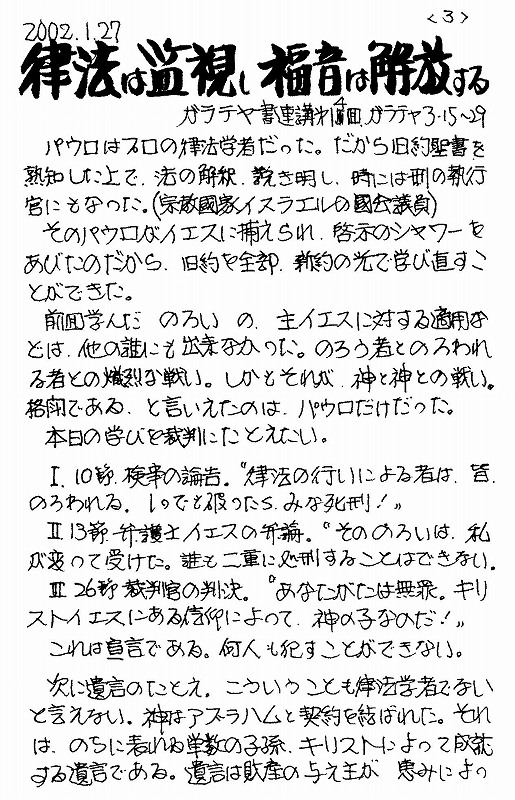 <3>
2002.1.27
律法は監視し 福音は解放する
ガラテヤ書連講 4回 ガラテヤ3.15〜29
パウロはプロの律法学者だった。だから旧約聖書を
熟知した上で、法の解釈、説き明し、時には刑の執行
官にもなった。(宗教國家イスラエルの國会議員)
そのパウロがイエスに捕えられ、啓示のシャワーを
あびたのだから、旧約を全部、新約の光で学び直すこ
とができた。
前回学んだ のろい の、主イエスに対する適用な
どは、他の誰にも出来なかった。のろう者とのろわれ
る者との熾烈な戦い。しかもそれが、神と神との戦い。
格印である、と言いえたのは、パウロだけだった。
本日の学びを裁判にたとえたい。
I. 10節. 検事の論告。“律法の行いによる者は、皆、
のろわれる。1つでも破ったら、みな死刑！〟
II 13節-弁護士イエスの弁論。“そののろいは、私
が変って受けた。誰も二重に処刑することはできない。
III 26節 裁判官の判決。“あなたがたは無罪。キリ
ストイエスにある信仰によって、神の子なのだ！〟
これは宣言である。何人も犯すことができない。
次に遺言のたとえ。こういうことも律法学者でない
と言えない。神はアブラハムと契約を結ばれた。それ
は、のちに表れる単数の子孫、キリストによって成就
する遺言である。遺言は財産の与え主が 恵みによっ